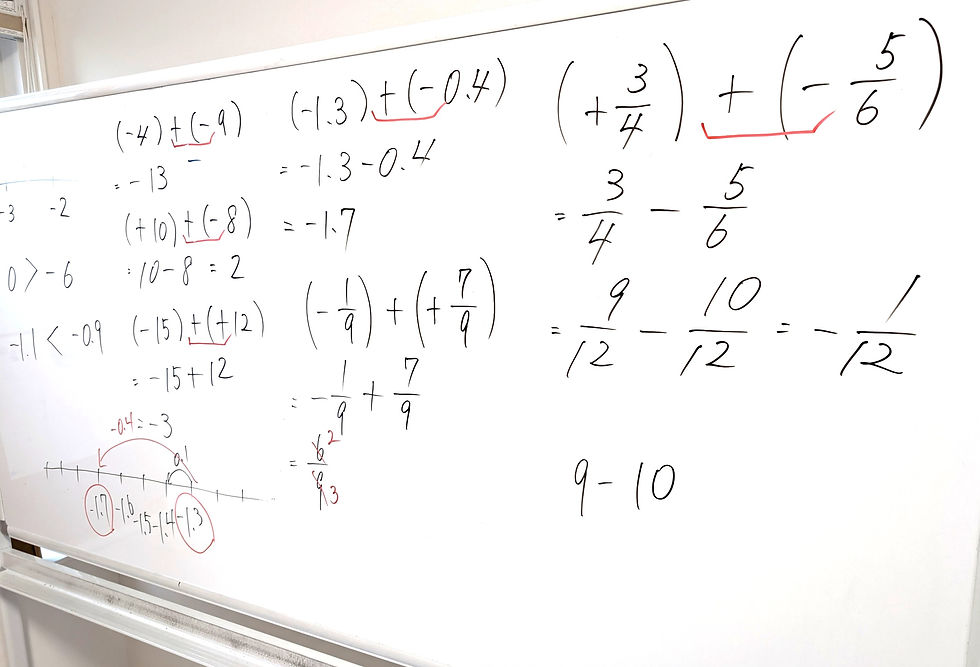 -3 -2
0 > -6
-1.1 < -0.9
(-4)+(-9)
= -13
(+10)+(-8)
= 10-8 = 2
(-15)+(+12)
= -15+12
= -3
-0.4
0.1
-1.7 -1.6 -1.5 -1.4 -1.3
(-1.3)+(-0.4)
= -1.3-0.4
= -1.7
(-1/9)+(+7/9)
= -1/9+7/9
= 6/9 2 3
(+3/4)+(-5/6)
= 3/4 - 5/6
= 9/12 - 10/12 = -1/12
9-10